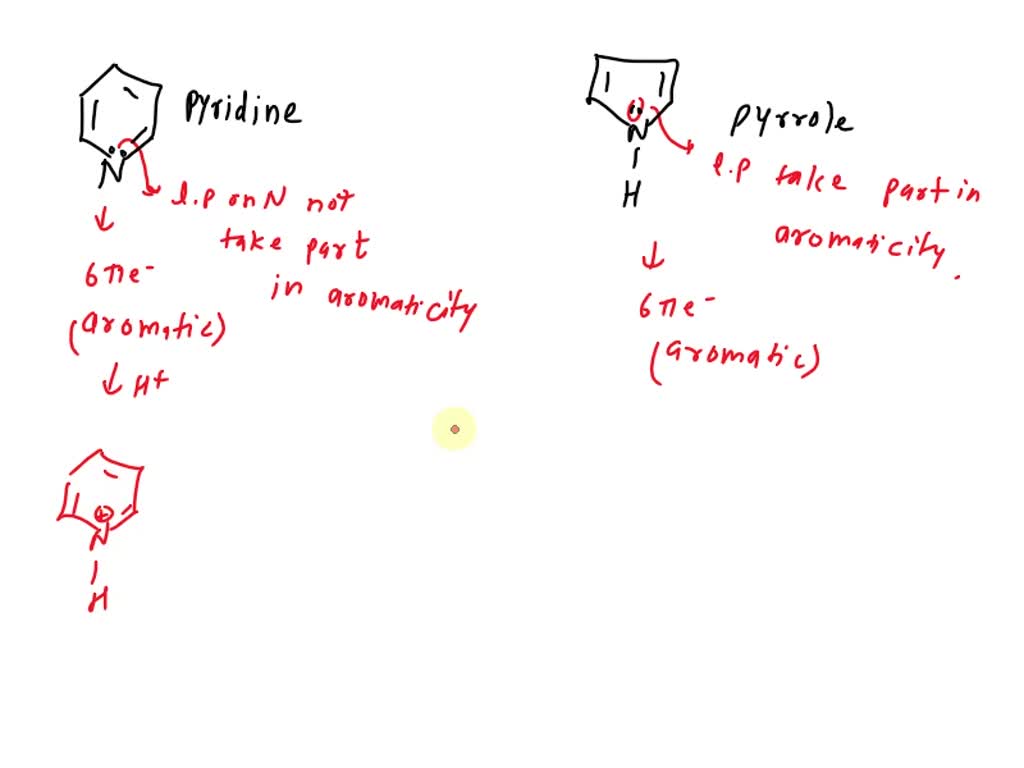 Pyridine
N
l.p on N not
take part
in aromaticity
↓
6πe⁻
(aromatic)
↓ H+
⊕
N
H
Pyrrole
N
H
l.p take part in
aromaticity.
↓
6πe⁻
(aromatic)